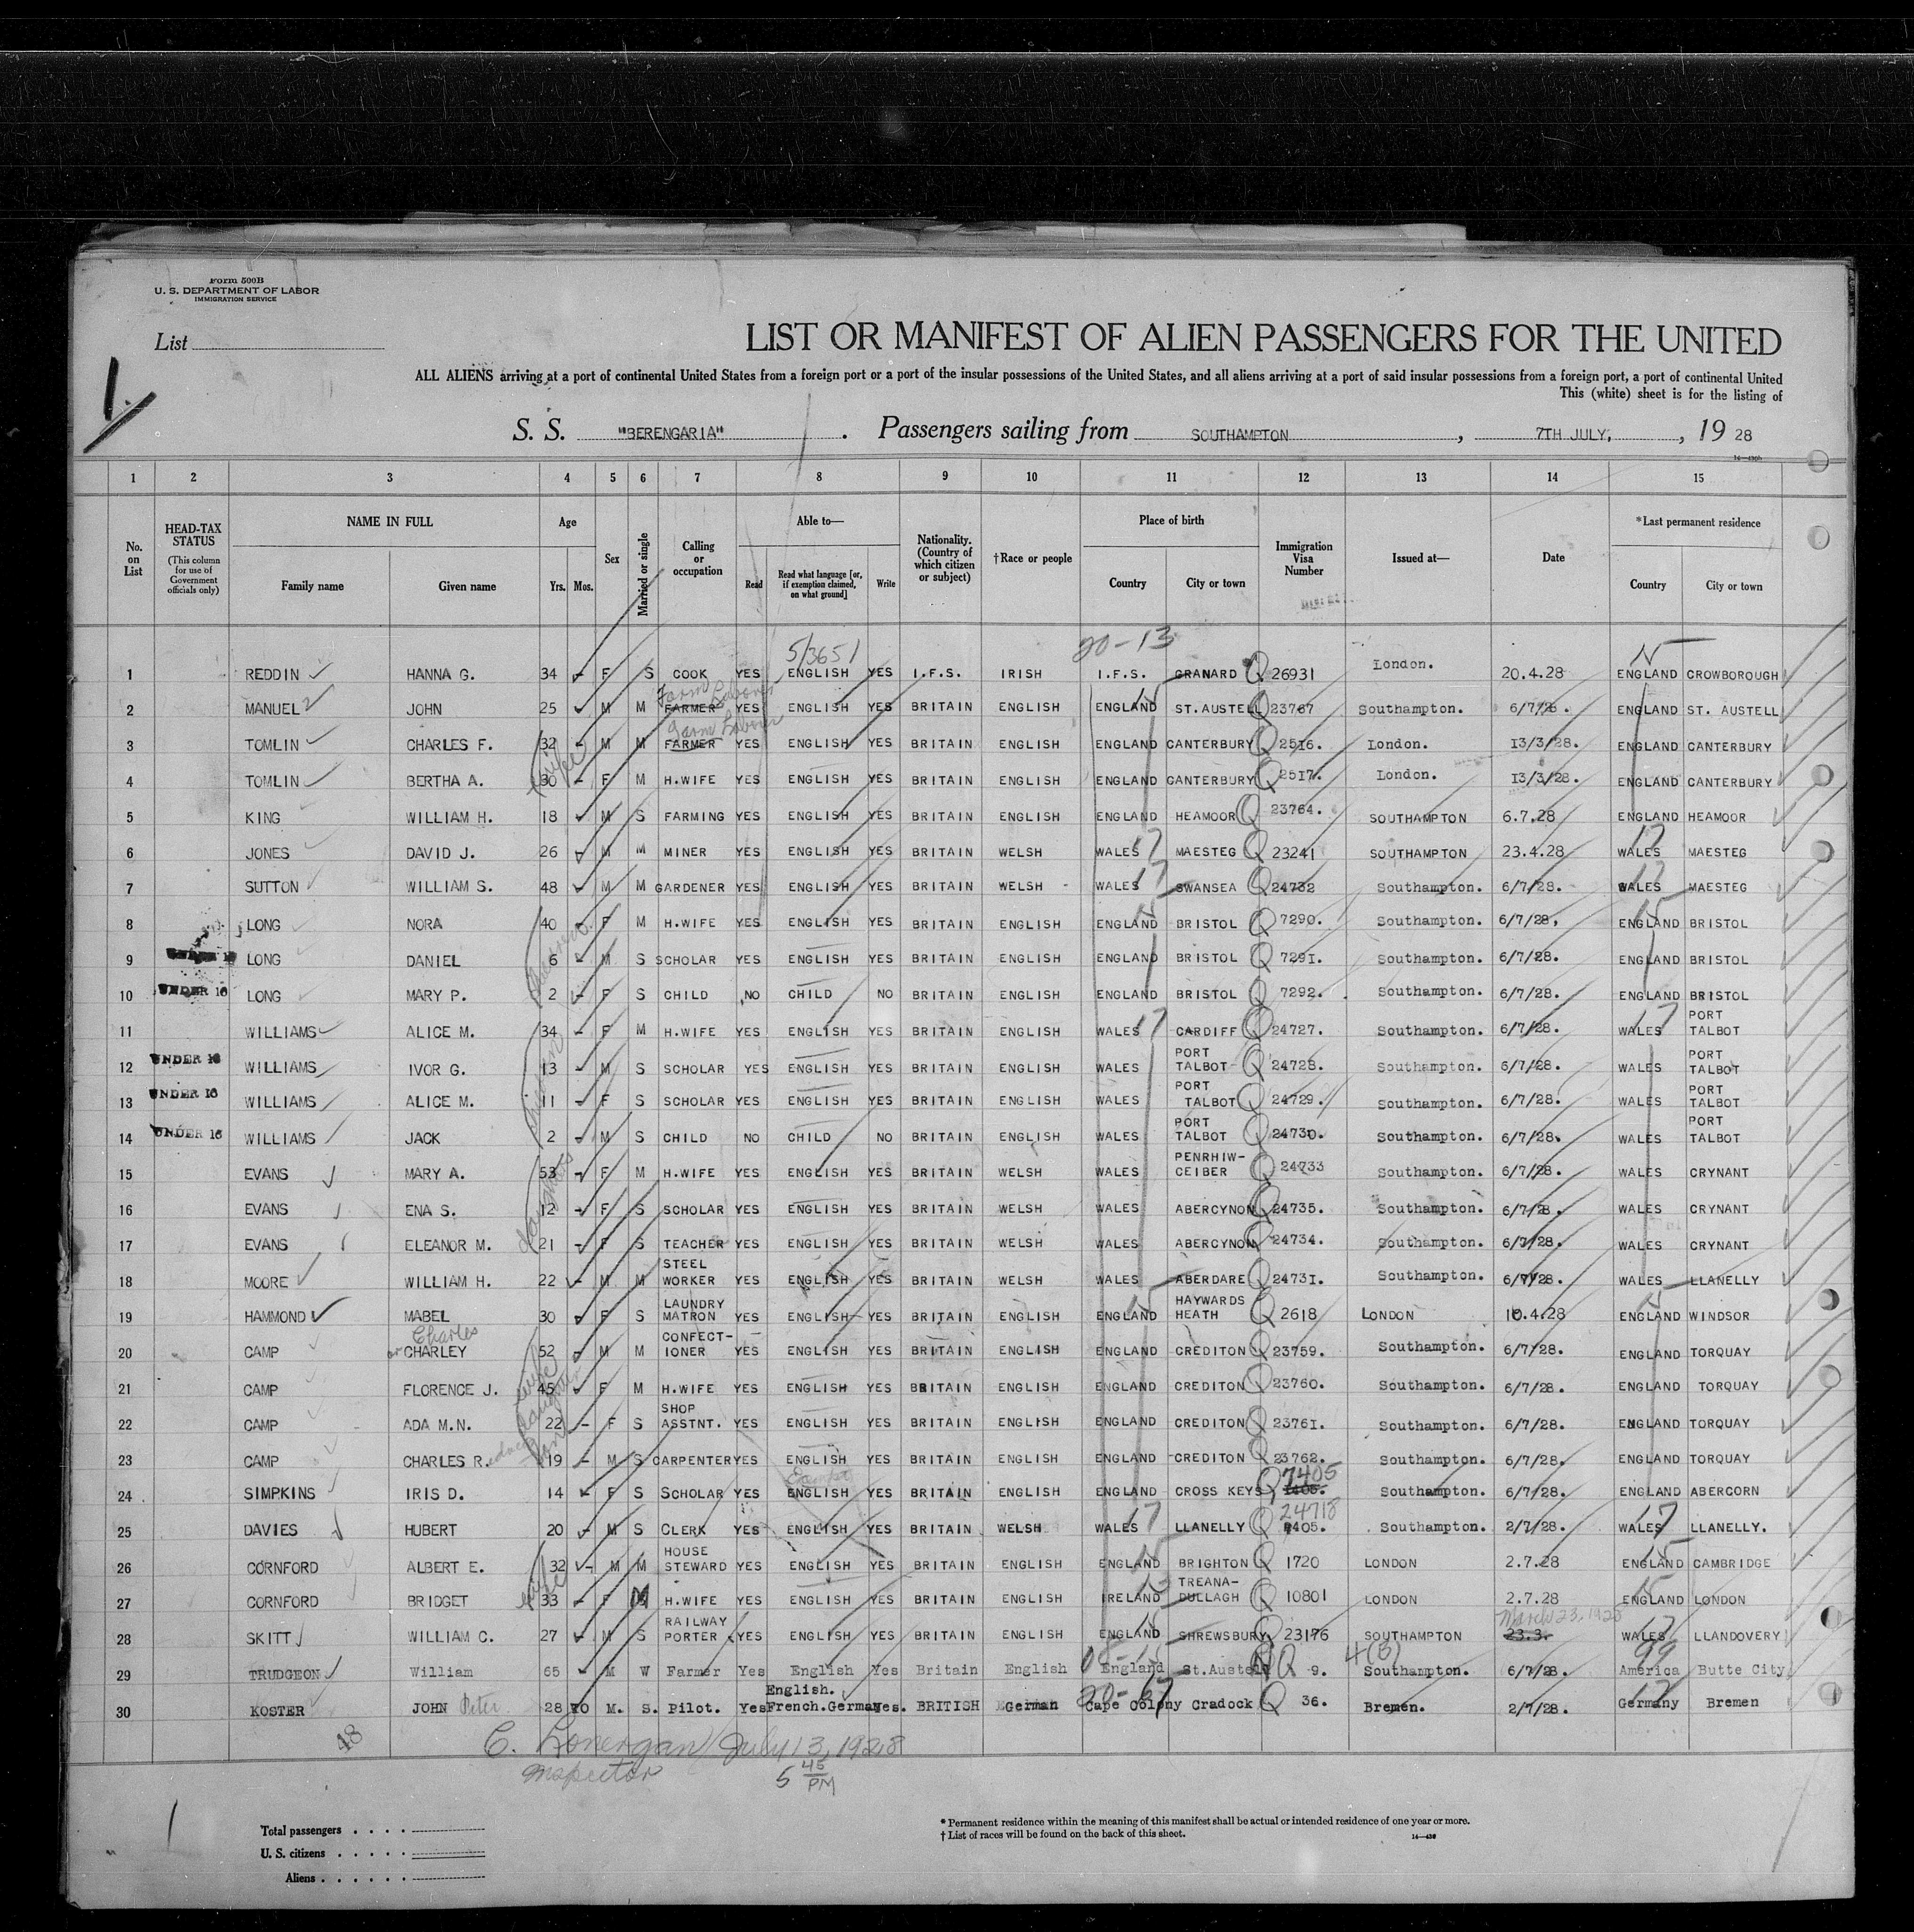 Form 500B
U. S. DEPARTMENT OF LABOR
IMMIGRATION SERVICE
List
1.
LIST OR MANIFEST OF ALIEN PASSENGERS FOR THE UNITED
ALL ALIENS arriving at a port of continental United States from a foreign port or a port of the insular possessions of the United States, and all aliens arriving at a port of said insular possessions from a foreign port, a port of continental United
This (white) sheet is for the listing of
S. S. "BERENGARIA". Passengers sailing from SOUTHAMPTON, 7TH JULY, , 19 28
1 2 3 4 5 6 7 8 9 10 11 12 13 14 15
No. on List
HEAD-TAX STATUS (This column for use of Government officials only)
NAME IN FULL Family name Given name
Age Yrs. Mos.
Sex
Married or single
Calling or occupation
Able to— Read Read what language [or, if exemption claimed, on what ground] Write
Nationality. (Country of which citizen or subject)
†Race or people
Place of birth Country City or town
Immigration Visa Number
Issued at—
Date
*Last permanent residence Country City or town
5/3651 20-13 N
1 REDDIN HANNA G. 34 F S COOK YES ENGLISH YES I.F.S. IRISH I.F.S. GRANARD Q 26931 London. 20.4.28 ENGLAND CROWBOROUGH
Farm Laborer
2 MANUEL JOHN 25 M M FARMER YES ENGLISH YES BRITAIN ENGLISH ENGLAND ST.AUSTELL Q 23767 Southampton. 6/7/28. ENGLAND ST. AUSTELL
Farm Laborer
3 TOMLIN CHARLES F. 32 M M FARMER YES ENGLISH YES BRITAIN ENGLISH ENGLAND CANTERBURY Q 2516. London. 13/3/28. ENGLAND CANTERBURY
4 TOMLIN BERTHA A. wife 30 F M H.WIFE YES ENGLISH YES BRITAIN ENGLISH ENGLAND CANTERBURY Q 2517. London. 13/3/28. ENGLAND CANTERBURY
5 KING WILLIAM H. 18 M S FARMING YES ENGLISH YES BRITAIN ENGLISH ENGLAND HEAMOOR Q 23764. SOUTHAMPTON 6.7.28 ENGLAND HEAMOOR
6 JONES DAVID J. 26 M M MINER YES ENGLISH YES BRITAIN WELSH WALES 17 MAESTEG Q 23241 SOUTHAMPTON 23.4.28 WALES 17 MAESTEG
7 SUTTON WILLIAM S. 48 M M GARDENER YES ENGLISH YES BRITAIN WELSH WALES 17 SWANSEA Q 24732 Southampton. 6/7/28. WALES 17 MAESTEG
8 LONG NORA 40 F M H.WIFE YES ENGLISH YES BRITAIN ENGLISH ENGLAND 15 BRISTOL Q 7290. Southampton. 6/7/28, ENGLAND 15 BRISTOL
9 LONG DANIEL 6 M S SCHOLAR YES ENGLISH YES BRITAIN ENGLISH ENGLAND BRISTOL Q 7291. Southampton. 6/7/28. ENGLAND BRISTOL
10 UNDER 16 LONG MARY P. children 2 F S CHILD NO CHILD NO BRITAIN ENGLISH ENGLAND BRISTOL Q 7292. Southampton. 6/7/28. ENGLAND BRISTOL
11 WILLIAMS ALICE M. 34 F M H.WIFE YES ENGLISH YES BRITAIN ENGLISH WALES 17 CARDIFF Q 24727. Southampton. 6/7/28. WALES 17 PORT TALBOT
12 UNDER 16 WILLIAMS IVOR G. 13 M S SCHOLAR YES ENGLISH YES BRITAIN ENGLISH WALES PORT TALBOT Q 24728. Southampton. 6/7/28. WALES PORT TALBOT
13 UNDER 16 WILLIAMS ALICE M. children 11 F S SCHOLAR YES ENGLISH YES BRITAIN ENGLISH WALES PORT TALBOT Q 24729. Southampton. 6/7/28. WALES PORT TALBOT
14 UNDER 16 WILLIAMS JACK 2 M S CHILD NO CHILD NO BRITAIN ENGLISH WALES PORT TALBOT Q 24730. Southampton. 6/7/28. WALES PORT TALBOT
15 EVANS MARY A. 53 F M H.WIFE YES ENGLISH YES BRITAIN WELSH WALES PENRHIW-CEIBER Q 24733 Southampton. 6/7/28. WALES CRYNANT
16 EVANS ENA S. daughters 12 F S SCHOLAR YES ENGLISH YES BRITAIN WELSH WALES ABERCYNON Q 24735. Southampton. 6/7/28. WALES CRYNANT
17 EVANS ELEANOR M. 21 F S TEACHER YES ENGLISH YES BRITAIN WELSH WALES ABERCYNON Q 24734. Southampton. 6/7/28. WALES CRYNANT
18 MOORE WILLIAM H. 22 M M STEEL WORKER YES ENGLISH YES BRITAIN WELSH WALES ABERDARE Q 24731. Southampton. 6/7/28. WALES LLANELLY
19 HAMMOND MABEL 30 F S LAUNDRY MATRON YES ENGLISH YES BRITAIN ENGLISH ENGLAND 15 HAYWARDS HEATH Q 2618 LONDON 10.4.28 ENGLAND 15 WINDSOR
Charles
20 CAMP or CHARLEY 52 M M CONFECT-IONER YES ENGLISH YES BRITAIN ENGLISH ENGLAND CREDITON Q 23759. Southampton. 6/7/28. ENGLAND TORQUAY
21 CAMP FLORENCE J. wife 45 F M H.WIFE YES ENGLISH YES BRITAIN ENGLISH ENGLAND CREDITON Q 23760. Southampton. 6/7/28. ENGLAND TORQUAY
22 CAMP ADA M.N. daughter 22 F S SHOP ASSTNT. YES ENGLISH YES BRITAIN ENGLISH ENGLAND CREDITON Q 23761. Southampton. 6/7/28. ENGLAND TORQUAY
23 CAMP CHARLES R. son 19 M S CARPENTER YES ENGLISH YES BRITAIN ENGLISH ENGLAND CREDITON Q 23762. Southampton. 6/7/28. ENGLAND TORQUAY
24 SIMPKINS IRIS D. 14 F S SCHOLAR YES ENGLISH YES BRITAIN ENGLISH ENGLAND CROSS KEYS Q 7405 Southampton. 6/7/28. ENGLAND ABERCORN
24718
25 DAVIES HUBERT 20 M S CLERK YES ENGLISH YES BRITAIN WELSH WALES 17 LLANELLY Q 7405. Southampton. 2/7/28. WALES 17 LLANELLY.
26 CORNFORD ALBERT E. 32 M M HOUSE STEWARD YES ENGLISH YES BRITAIN ENGLISH ENGLAND 15 BRIGHTON Q 1720 LONDON 2.7.28 ENGLAND 15 CAMBRIDGE
27 CORNFORD BRIDGET wife 33 F M H.WIFE YES ENGLISH YES BRITAIN ENGLISH IRELAND 13 TREANA-DULLAGH Q 10801 LONDON 2.7.28 ENGLAND 15 LONDON
March 23, 1928
28 SKITT WILLIAM C. 27 M S RAILWAY PORTER YES ENGLISH YES BRITAIN ENGLISH ENGLAND 15 SHREWSBURY Q 23176 SOUTHAMPTON 23.3. WALES 17 LLANDOVERY
29 TRUDGEON William 65 M W Farmer Yes English Yes Britain English England St.Austell Q 9. 4(B) Southampton. 6/7/28. America 99 Butte City
30 KOSTER JOHN Peter 28 M. S. Pilot. Yes English. French.German Yes. BRITISH German Cape Colony Cradock Q 36. Bremen. 2/7/28. Germany 17 Bremen
48
C. Lonergan July 13, 1928
Inspector 5 45 PM
1
Total passengers
U. S. citizens
Aliens
* Permanent residence within the meaning of this manifest shall be actual or intended residence of one year or more.
† List of races will be found on the back of this sheet.
14—430